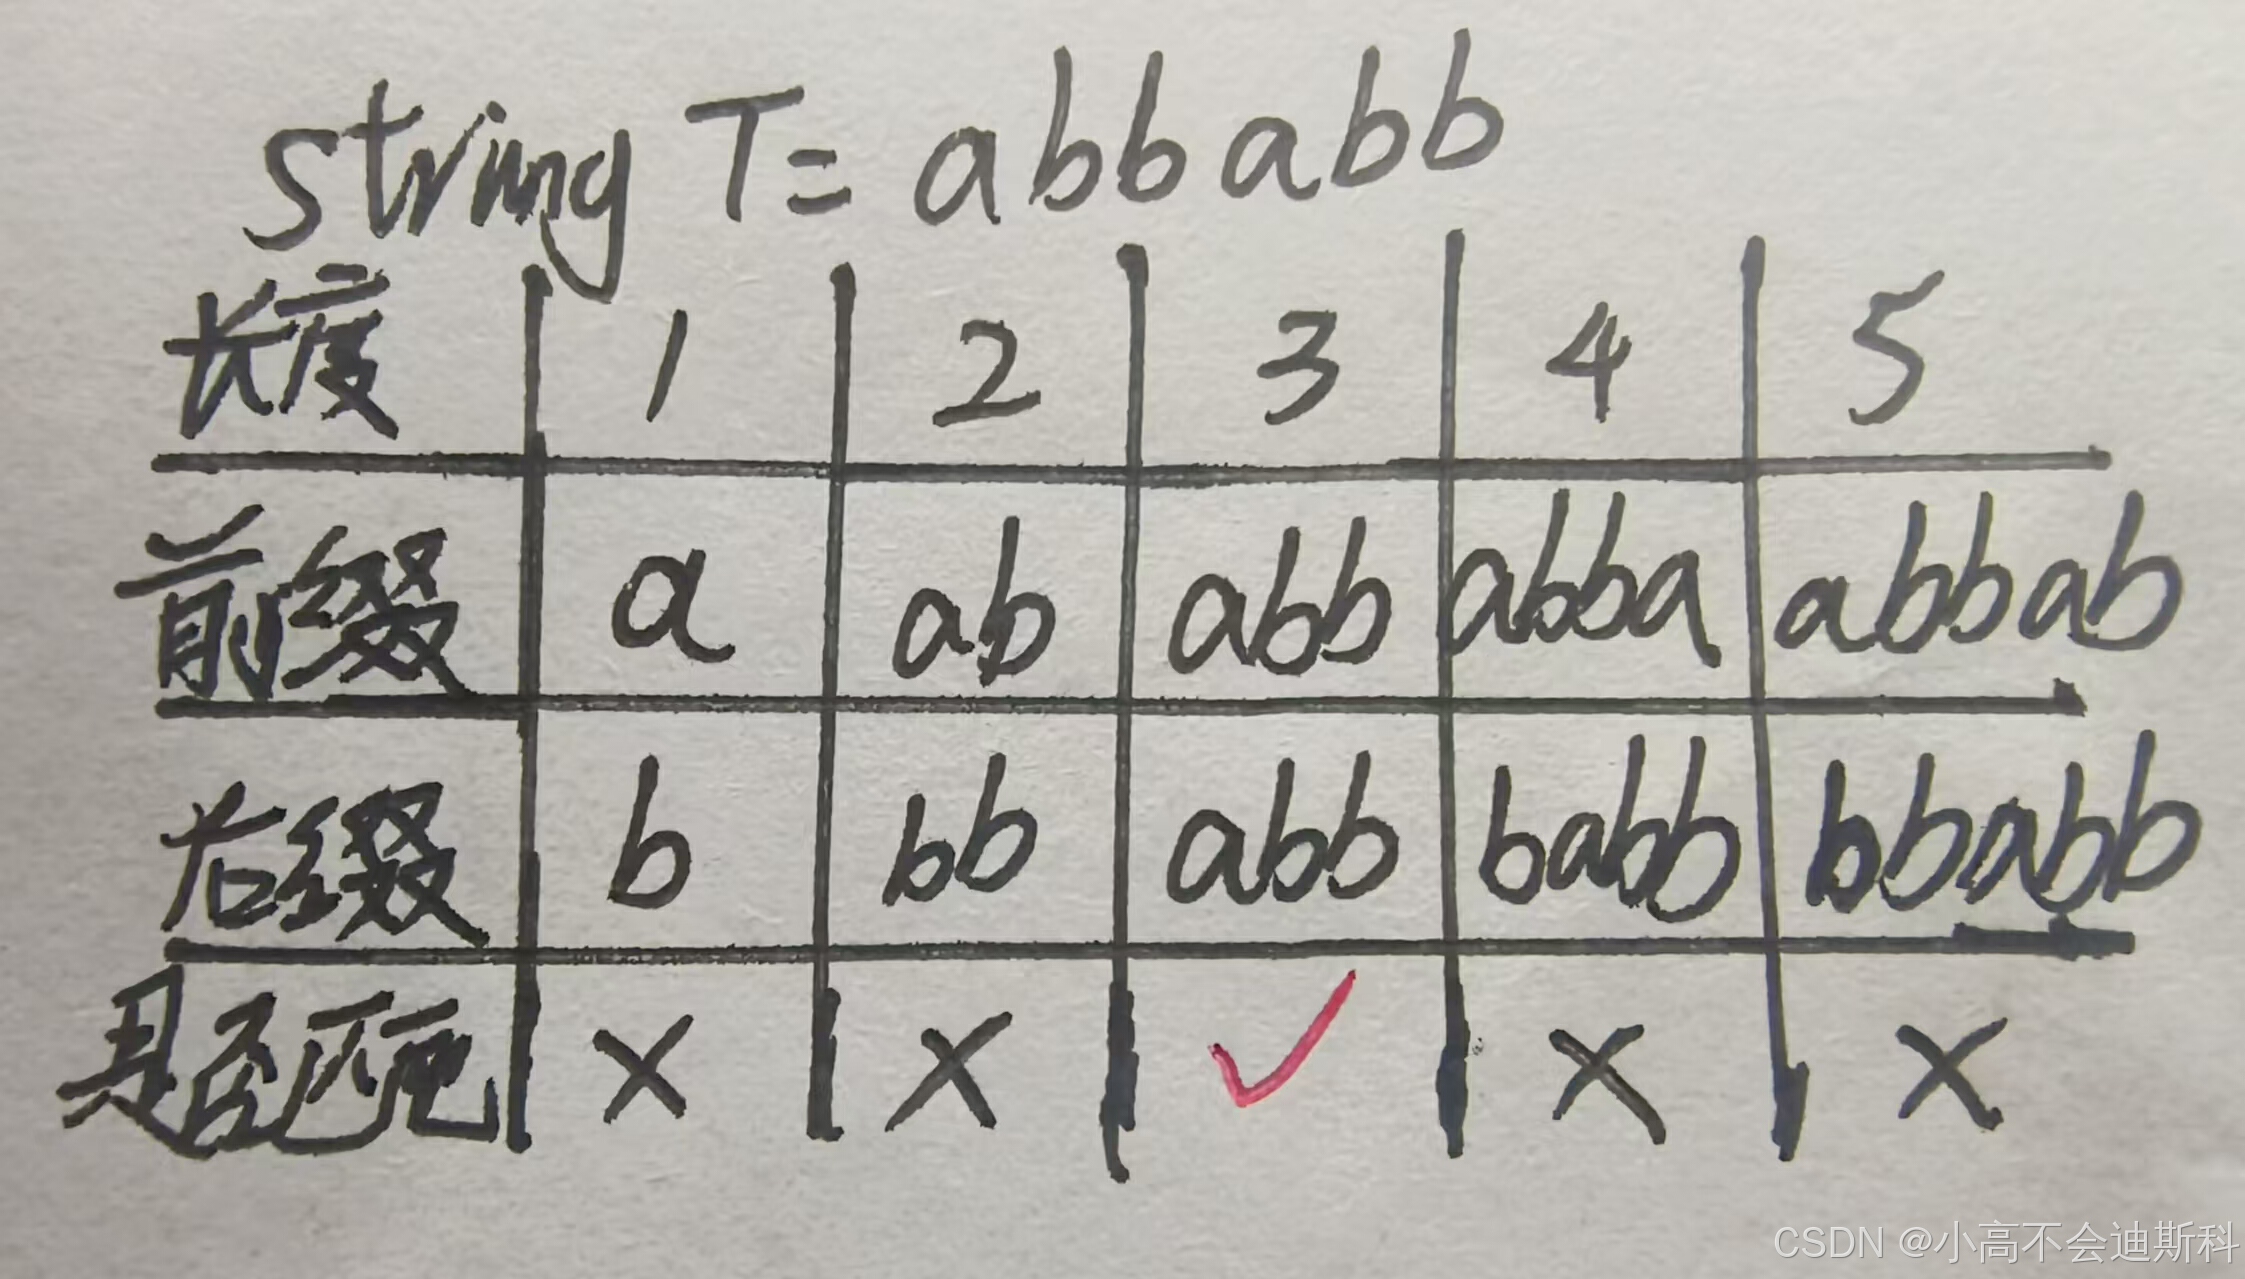 string T= abbabb
长度 1 2 3 4 5
前缀 a ab abb abba abbab
后缀 b bb abb babb bbabb
是否匹配 × × ✓ × ×
CSDN @小高不会迪斯科